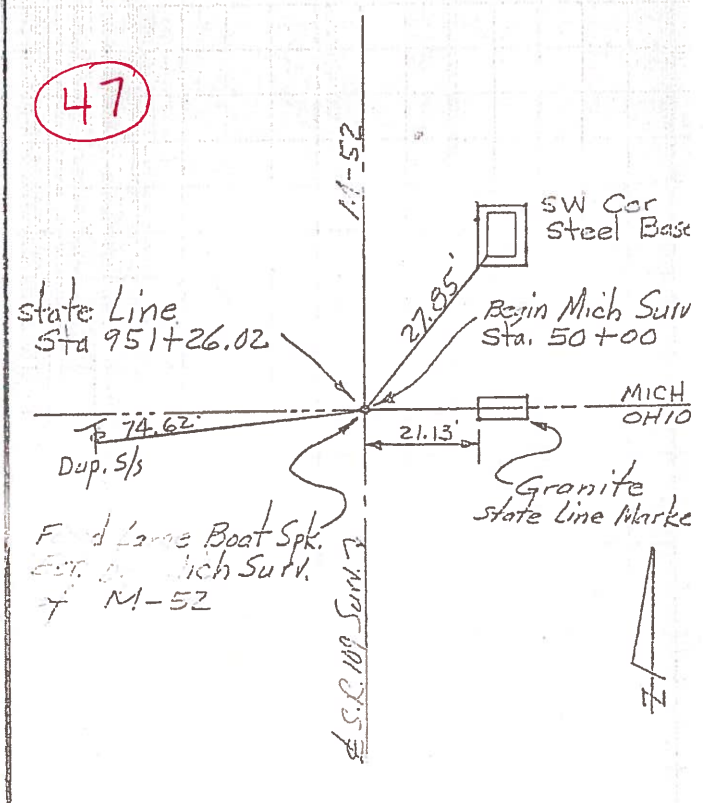 47
M-52
SW Cor
Steel Base
27.85'
State Line
Sta 951+26.02
Begin Mich Surv
Sta. 50+00
MICH
OHIO
74.62'
Dup. S/s
21.13'
Granite
State Line Marke
Boat Spk.
ich Surv.
M-52
℄ S.R. 109 Surv.
N